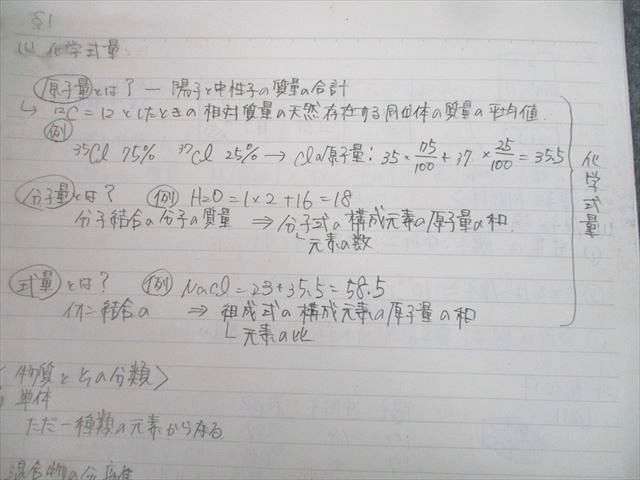 §1
(1) 化学式量
原子量とは? — 陽子と中性子の質量の合計
↳ ¹²C = 12 としたときの相対質量の天然存在する同位体の質量の平均値.
例
³⁵Cl 75% ³⁷Cl 25% → Clの原子量: 35 × 75/100 + 37 × 25/100 = 35.5
分子量とは? 例 H₂O = 1×2+16 = 18
分子結合の分子の質量 ⇒ 分子式の構成元素の原子量の和.
元素の数
式量とは? 例 NaCl = 23+35.5 = 58.5
イオン結合の ⇒ 組成式の構成元素の原子量の和
元素の比
化学式量
〈物質とその分類〉
単体
ただ一種類の元素からなる
混合物の分離